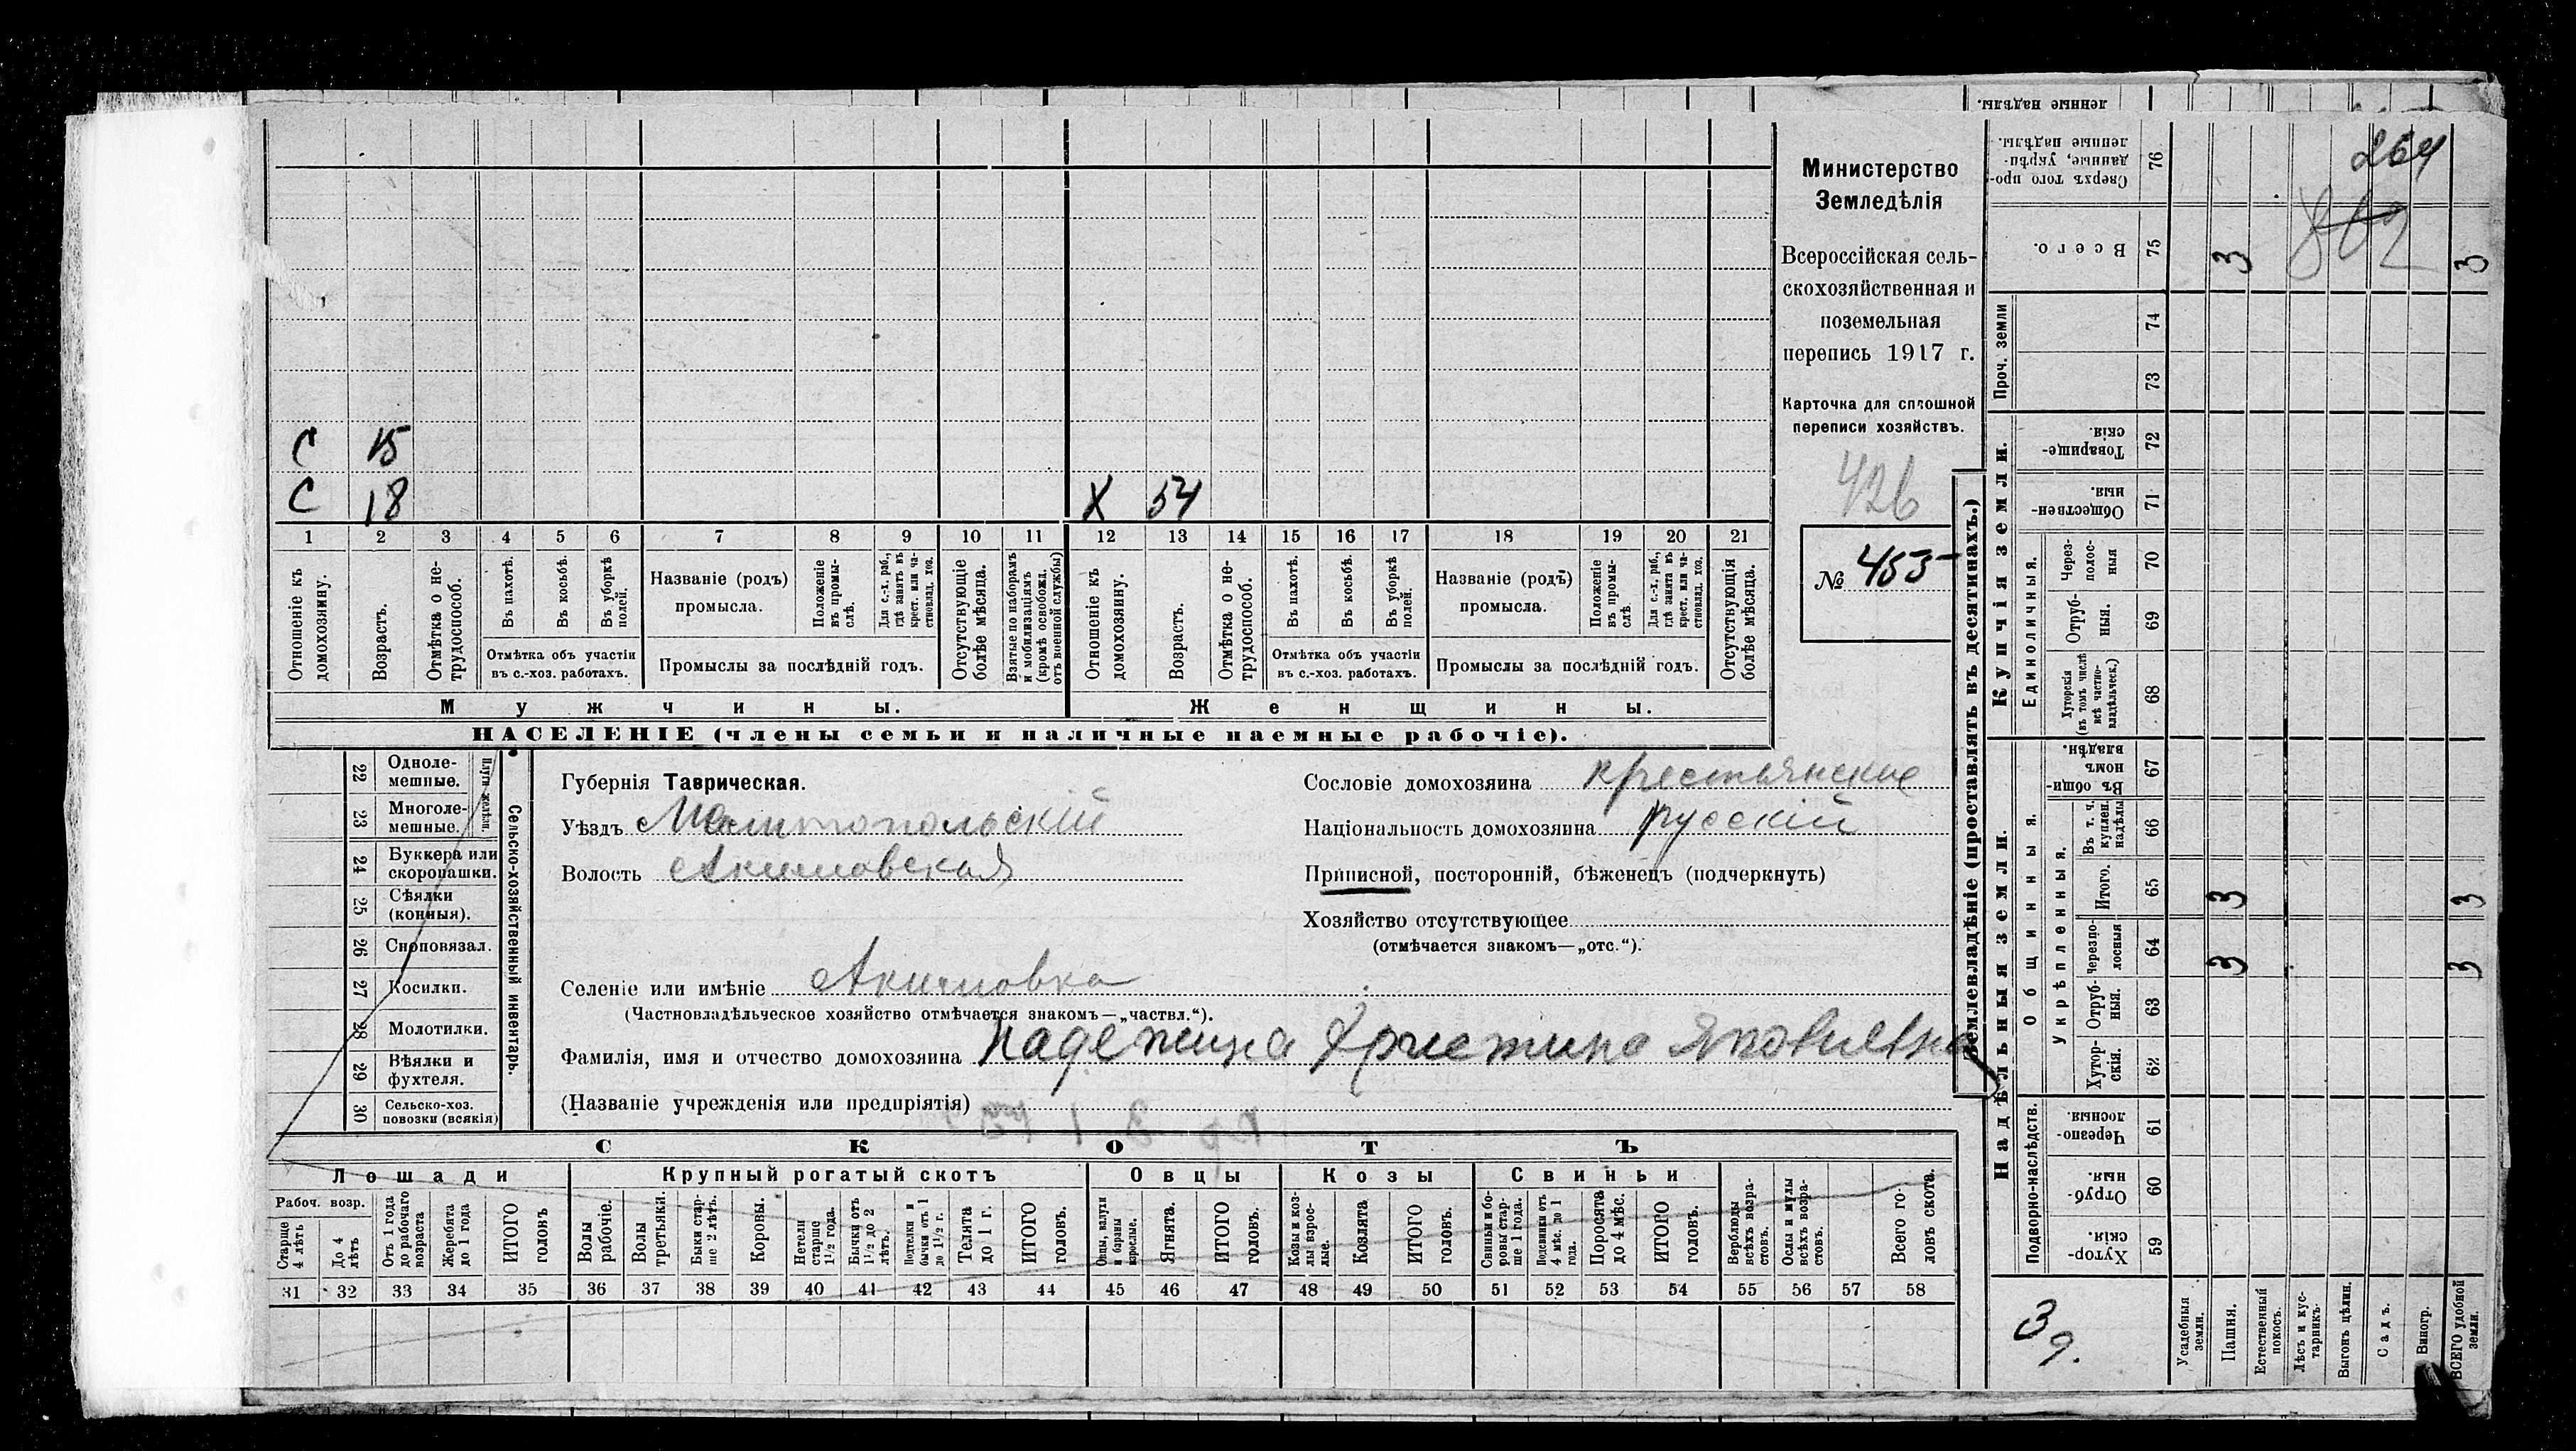 С 15
С 18
Х 54
1 2 3 4 5 6 7 8 9 10 11 12 13 14 15 16 17 18 19 20 21
Отношеніе къ домохозяину.
Возрастъ.
Отмѣтка о не-
трудоспособ.
Въ пахотѣ.
Въ косьбѣ.
Въ уборкѣ полей.
Отмѣтка объ участіи
въ с.-хоз. работахъ.
Названіе (родъ)
промысла.
Положеніе въ промы-
слѣ.
Для с.-х. раб., гдѣ занятъ въ крест. или ча-
стновлад. хоз.
Промыслы за послѣдній годъ.
Отсутствующіе болѣе мѣсяца.
Взятые по наборамъ и мобилизаціямъ (кромѣ освобожд. отъ военной службы)
Отношеніе къ домохозяину.
Возрастъ.
Отмѣтка о не-
трудоспособ.
Въ пахотѣ.
Въ косьбѣ.
Въ уборкѣ полей.
Отмѣтка объ участіи
въ с.-хоз. работахъ.
Названіе (родъ)
промысла.
Положеніе въ промы-
слѣ.
Для с.-х. раб., гдѣ занята въ крест. или ча-
стновлад. хоз.
Промыслы за послѣдній годъ.
Отсутствующія болѣе мѣсяца.
Мужчины.
Женщины.
НАСЕЛЕНІЕ (члены семьи и наличные наемные рабочіе).
Министерство
Земледѣлія
Всероссійская сель-
скохозяйственная и
поземельная
перепись 1917 г.
Карточка для сплошной
переписи хозяйствъ.
426
№ 453
22 Одноле-
мешные.
23 Многоле-
мешные.
Плуги желѣзн.
24 Буккера или
скоропашки.
25 Сѣялки
(конныя).
26 Сноповязал.
27 Косилки.
28 Молотилки.
29 Вѣялки и
фухтеля.
30 Сельско-хоз.
повозки (всякія)
Сельско-хозяйственный инвентарь.
Губернія Таврическая.
Уѣздъ Мелитопольскій
Волость Акимовская
Сословіе домохозяина крестьянское
Національность домохозяина русскій
Приписной, посторонній, бѣженецъ (подчеркнуть)
Хозяйство отсутствующее
(отмѣчается знакомъ—„отс.“).
Селеніе или имѣніе Акимовка
(Частновладѣльческое хозяйство отмѣчается знакомъ—„частвл.“).
Фамилія, имя и отчество домохозяина Христина Яковлевна
(Названіе учрежденія или предпріятія)
СКОТЪ
Лошади
Крупный рогатый скотъ
Овцы
Козы
Свиньи
Рабоч. возр.
Старше 4 лѣтъ
До 4 лѣтъ
Отъ 1 года до рабочаго возраста
Жеребята до 1 года
ИТОГО головъ
Волы рабочіе.
Волы третьяки.
Быки стар-
ше 2 лѣтъ.
Коровы.
Нетели старше 1½ года.
Бычки отъ 1½ до 2 лѣтъ.
Подтелки и бычки отъ 1 до 1½ г.
Телята до 1 г.
ИТОГО головъ.
Овцы, валухи и бараны взрослые.
Ягнята.
ИТОГО головъ.
Козы и коз-
лы взрос-
лые.
Козлята
ИТОГО головъ.
Свиньи и бо-
ровы стар-
ше 1 года.
Подсвинки отъ 4 мѣс. до 1 года.
Поросята до 4 мѣс.
ИТОГО головъ.
Верблюды всѣхъ возра-
стовъ.
Ослы и мулы всѣхъ возра-
стовъ.
Всего го-
ловъ скота.
31 32 33 34 35 36 37 38 39 40 41 42 43 44 45 46 47 48 49 50 51 52 53 54 55 56 57 58
Землевладѣніе (проставлять въ десятинахъ.)
Надѣльныя земли.
Купчія земли.
Проч. земли
Подворно-наслѣдств.
Общинныя.
Укрѣпленныя.
Единоличныя.
ленные надѣлы.
Сверхъ того про-
данные, укрѣп-
ленные надѣлы. 76
Всего. 75 3 3
74
73
Товарище-
скія. 72
Обществен-
ныя. 71
Через-
полос-
ныя 70
Отруб-
ныя. 69
Хуторскія (въ томъ числѣ всѣ частно-
владѣльческ.) 68
Въ общин-
номъ владѣн. 67
Въ т. ч. куплен. надѣлы 66
Итого. 65 3 3
Черезпо-
лосныя 64 3 3
Отруб-
ныя. 63
Хутор-
скія. 62
Черезпо-
лосныя. 61
Отруб-
ныя. 60
Хутор-
скія. 59
264
802
3 д.
Усадебныя земли.
Пашня.
Естественный покосъ.
Лѣсъ и кус-
тарникъ.
Выгонъ цѣлин.
Садъ.
Виногр.
ВСЕГО удобной земли.